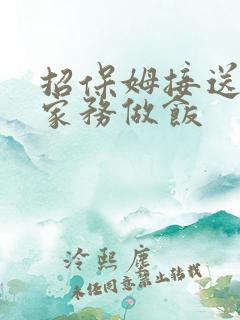 招保姆接送
家务做飯
泠熙塵
未经同意禁止转载